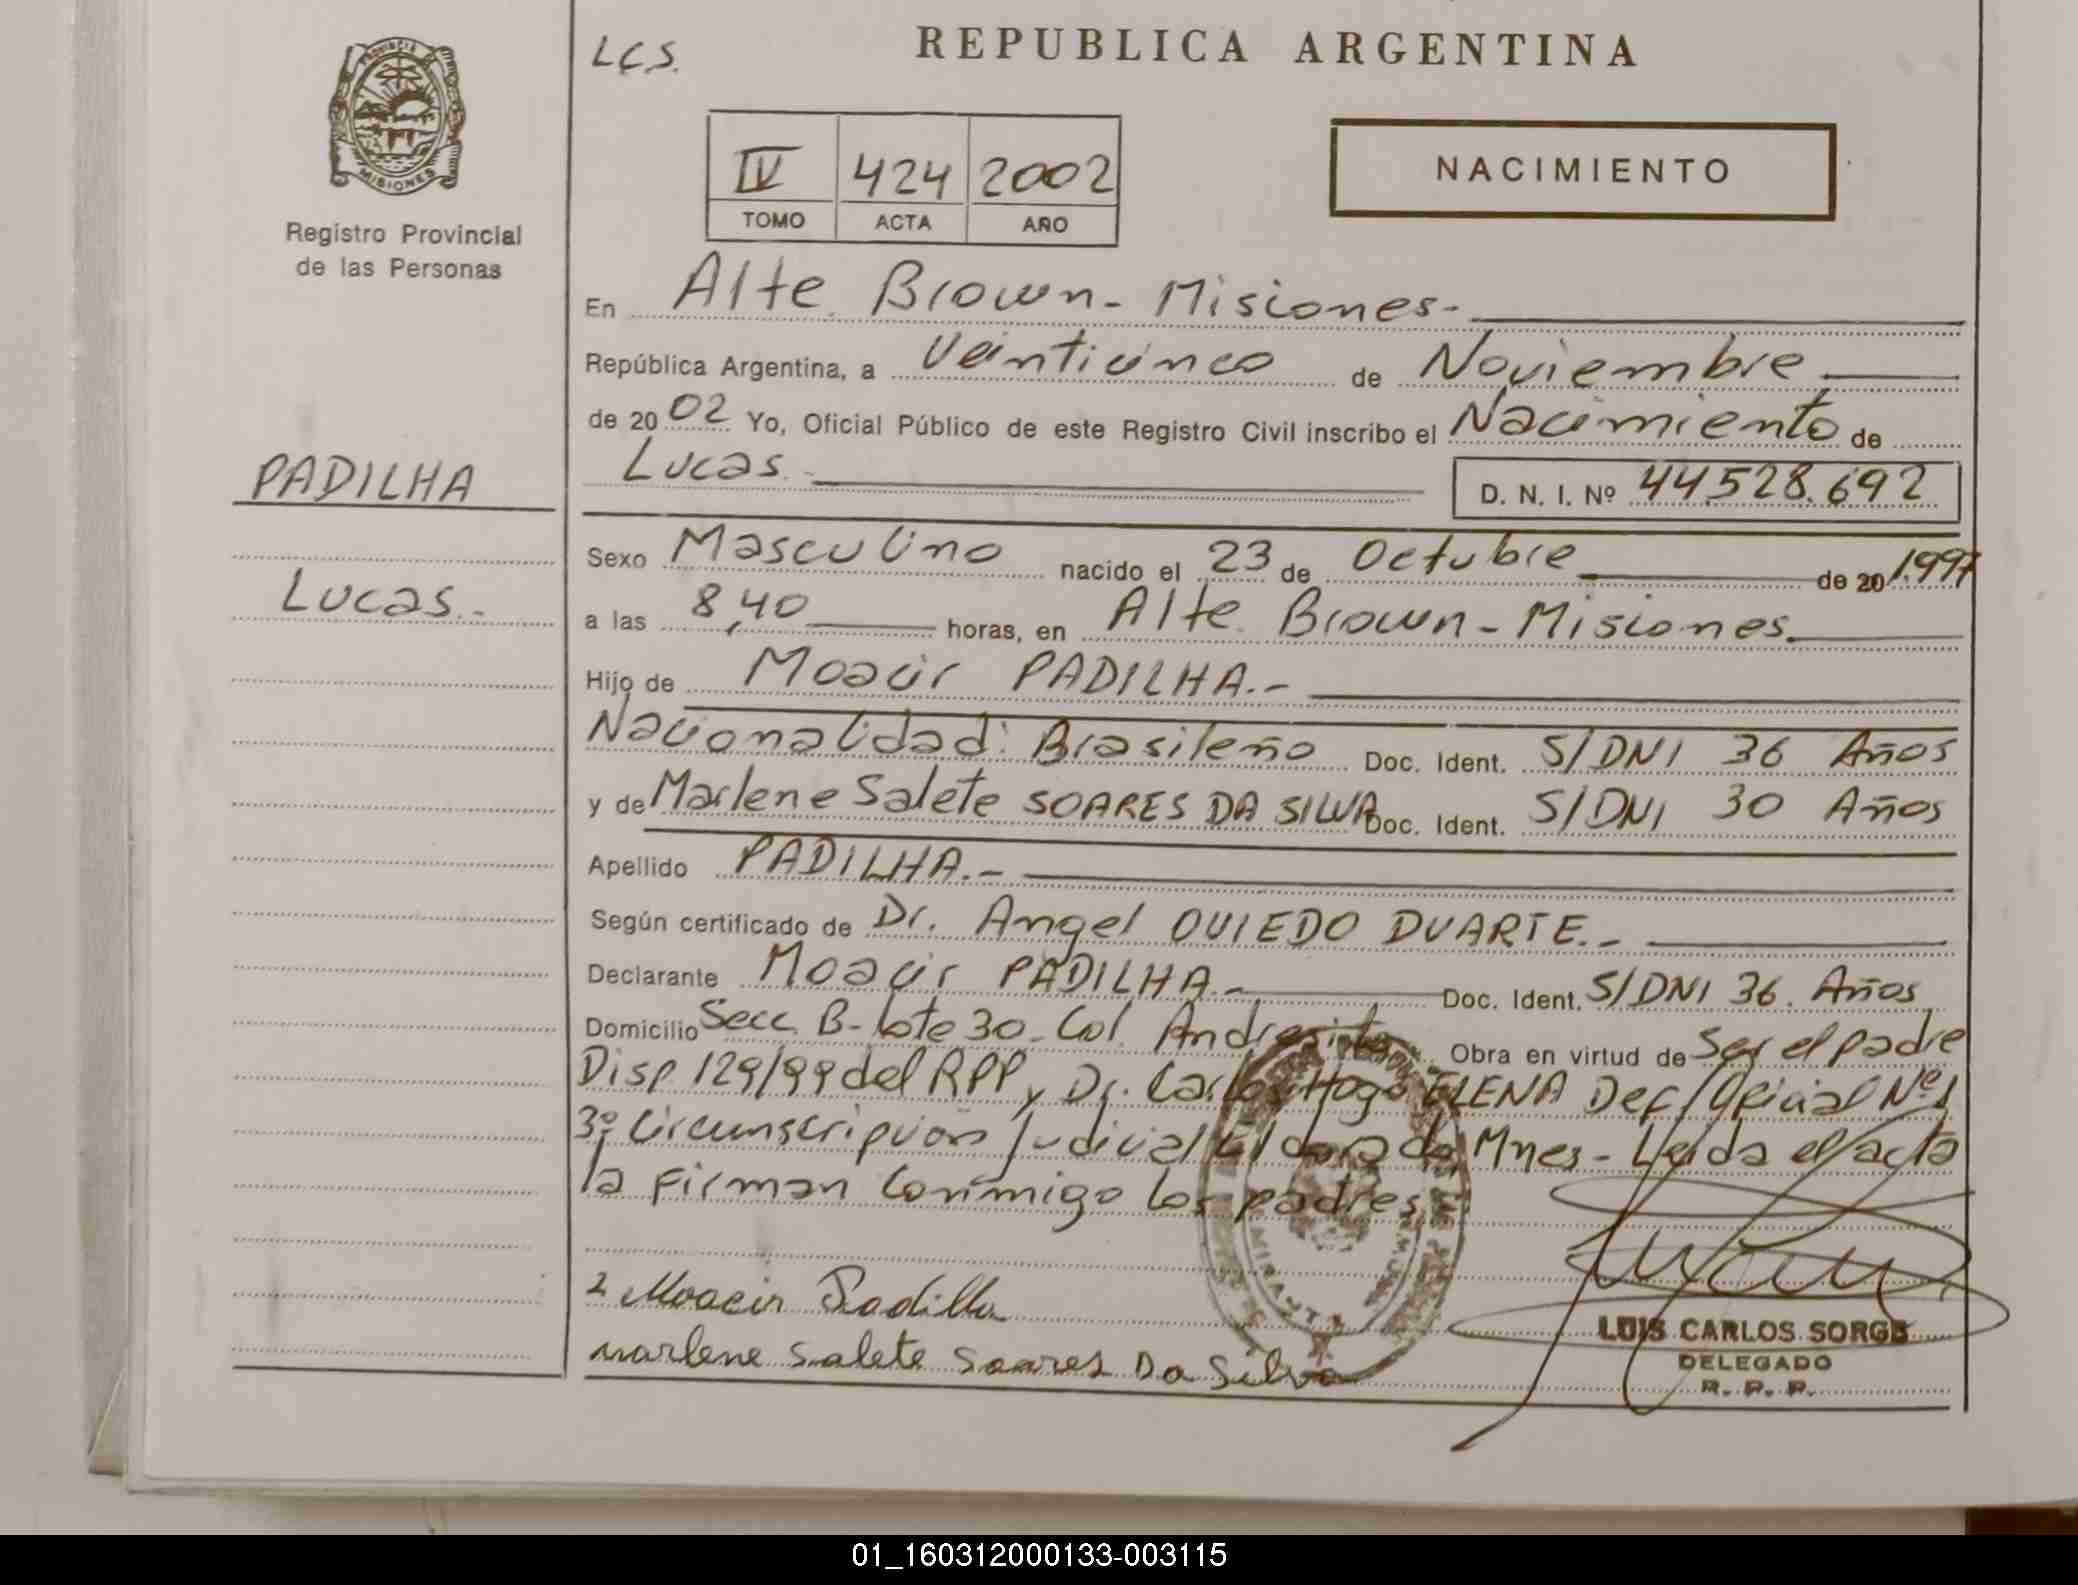 PROVINCIA
MISIONES
Registro Provincial
de las Personas
PADILHA
Lucas.-
L.C.S.
REPUBLICA ARGENTINA
IV 424 2002
TOMO ACTA AÑO
NACIMIENTO
En Alte. Brown - Misiones-
República Argentina, a Veinticinco de Noviembre
de 2002 Yo, Oficial Público de este Registro Civil inscribo el Nacimiento de
Lucas.- D. N. I. Nº 44.528.692
Sexo Masculino nacido el 23 de Octubre de 20 1.997
a las 8,40 horas, en Alte. Brown - Misiones.
Hijo de Moacir PADILHA.-
Nacionalidad: Brasileño Doc. Ident. S/DNI 36 Años
y de Marlene Salete SOARES DA SILVA Doc. Ident. S/DNI 30 Años
Apellido PADILHA.-
Según certificado de Dr. Angel OVIEDO DUARTE.-
Declarante Moacir PADILHA.- Doc. Ident. S/DNI 36 Años
Domicilio Secc. B- lote 30- Col. Andresito Obra en virtud de Ser el padre
Disp 129/99 del RPP y Dr. Carlos Hugo ELENA Def/Oficial Nº1
3º Circunscripción Judicial Eldorado, Mnes- Leída el acta
la Firman Conmigo los padres
Moacir Padilha
Marlene Salete Soares Da Silva
LUIS CARLOS SORGE
DELEGADO
R. P. P.
01_160312000133-003115